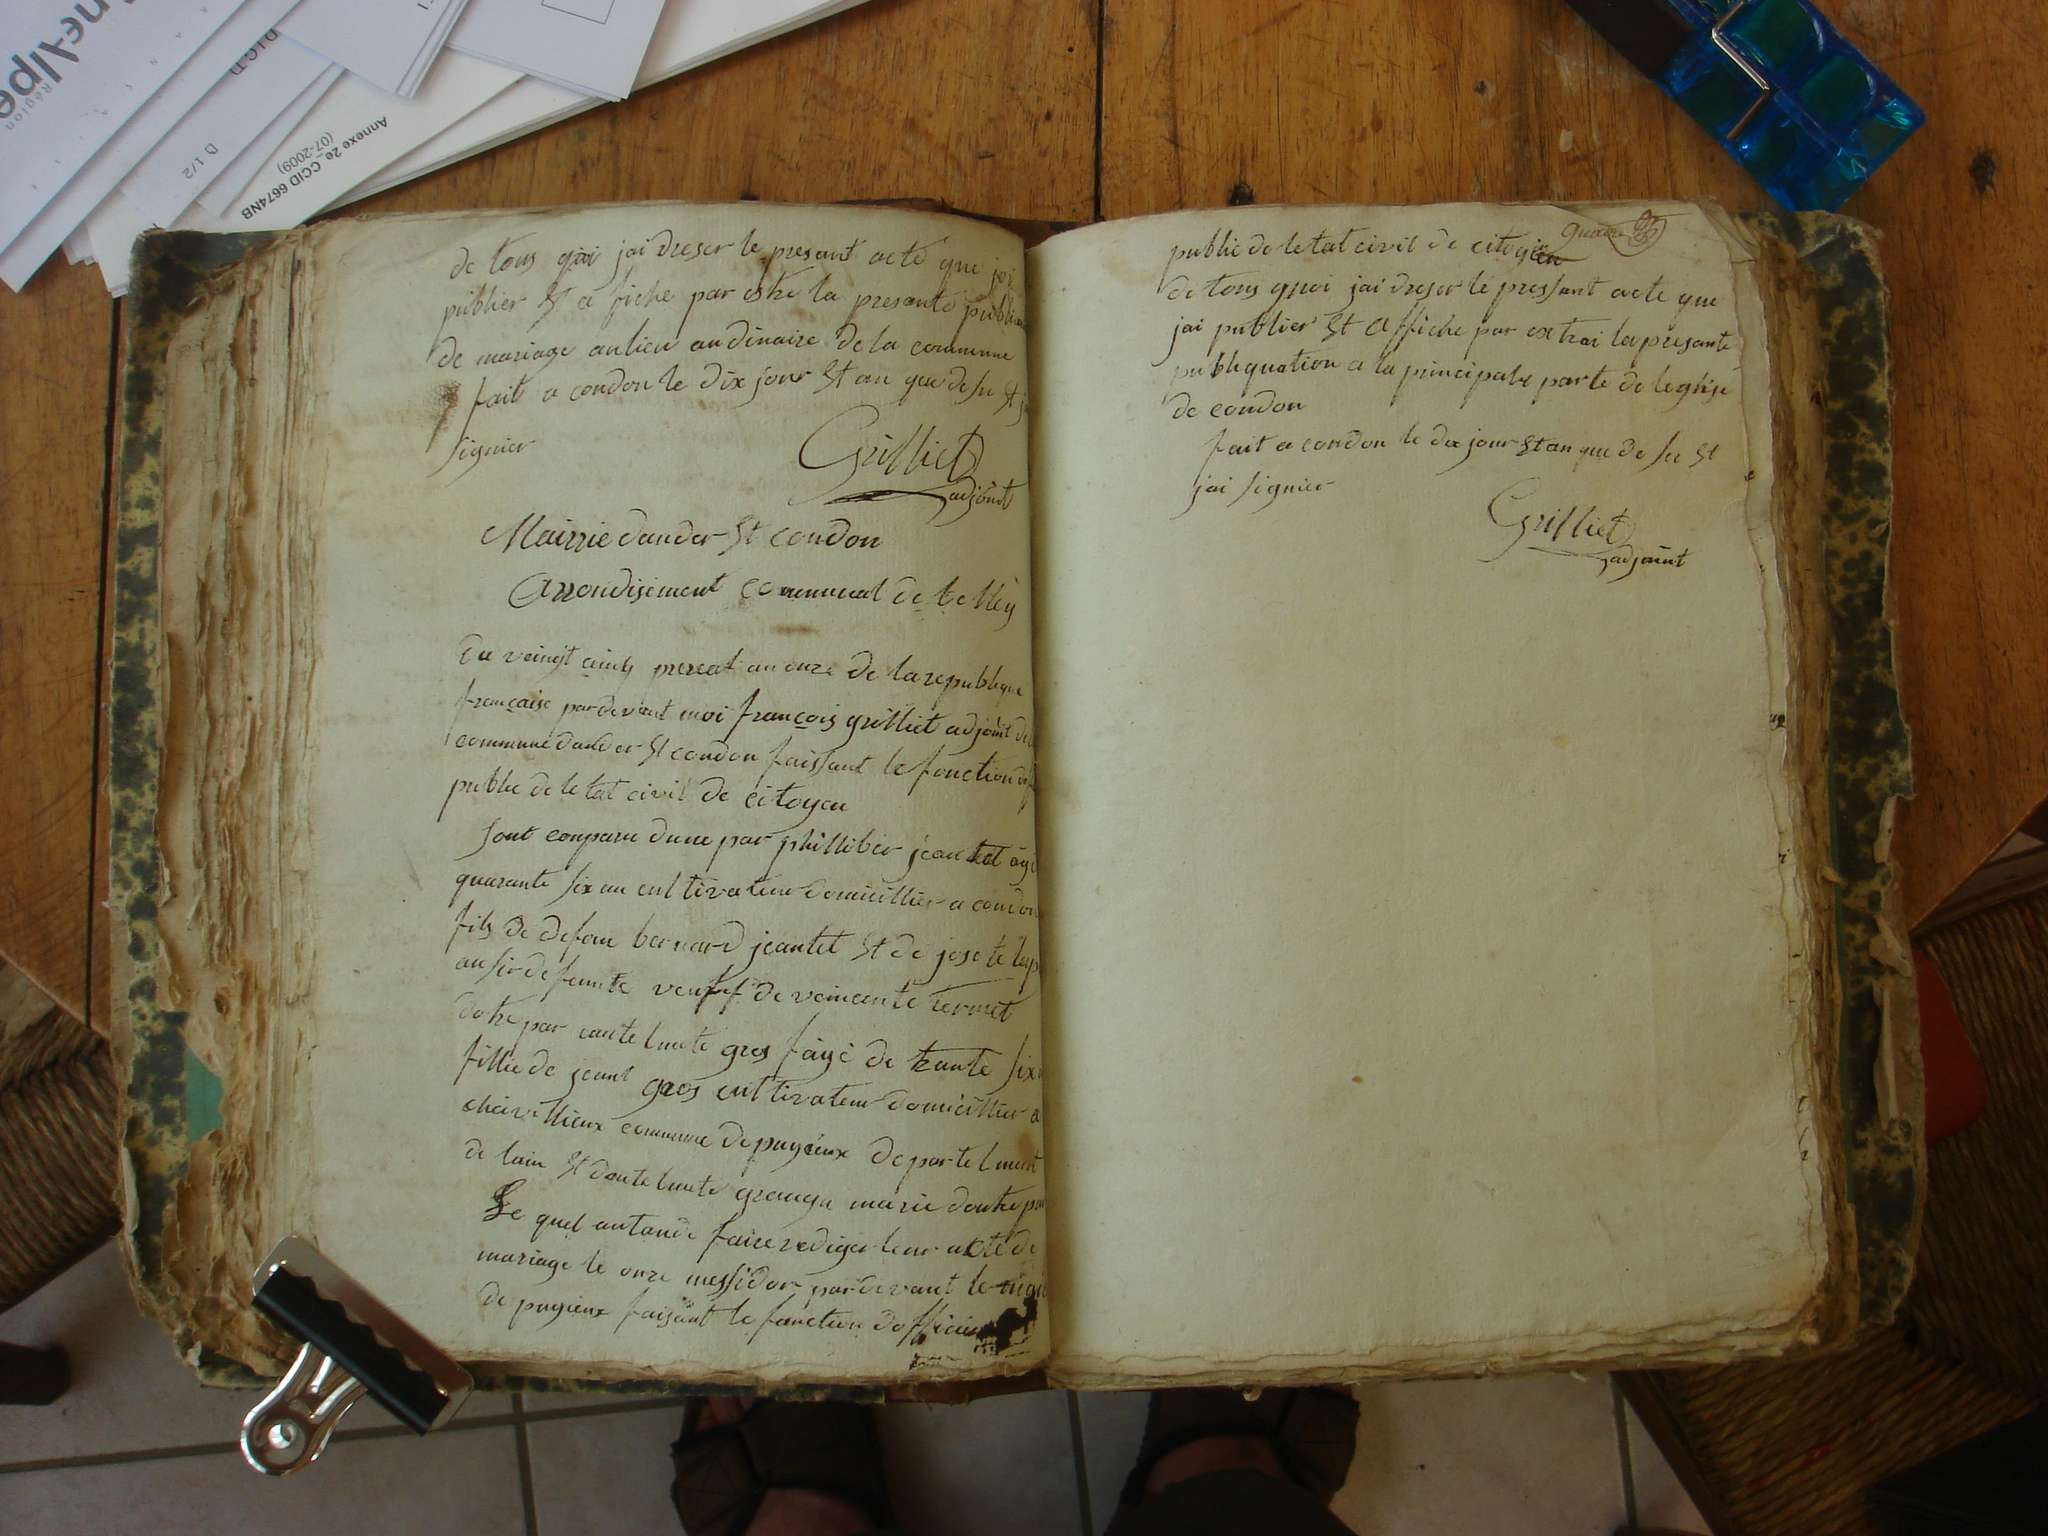 Région
D.L.C.D
D 1/2
Annexe 2e_CCID 6674NB
(07-2009)
de tous quoi jai dreser le presant acte que jai
publier et a fiche par la presante
de mariage au lieu audinaire de la commune
fait a condon le dix jour et an que de su et
signier
Grilliet
adjoint
Mairrie dander et condon
Arrondisement communal de belley
Du veingt cinq prereal an onze de la republique
française pardevant moi françois grilliet adjoint de
commune dander et condon faissant le fonction
public de letat civil de citoyen
sont comparu dune par philliber jeantet agé
quarante six an cultivateur domicillier a condon
fils de defeu bernard jeantet et de josete
ausir defeunte veuff de veincente termet
dotre par gros fagé de trante six
fillie de jeant gros cultivateur domicillier a
cheivillieux commune de pugieux departement
de lain et marie
Le quel antande faire rediger leur acte de
mariage le onze messidor pardevant le
de pugieux faisant le fonction dofficier
public de letat civil de citoyien
de tous quoi jai dreser le pressant acte que
jai publier et affiche par extrai la presante
publiquation a la principale parte de leglise
de condon
fait a condon le dix jour et an que de su et
jai signier
Grilliet
adjoint